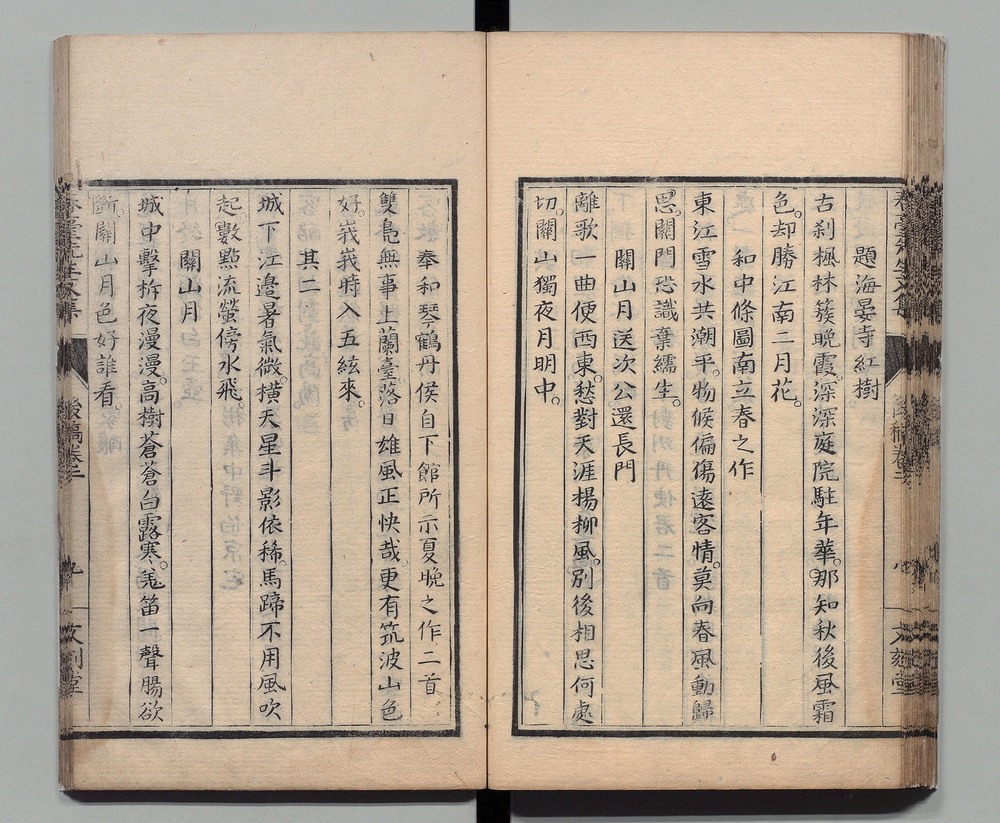 題海晏寺紅樹
古刹楓林簇晩霞。深深庭院駐年華。那知秋後風霜
色。却勝江南二月花。
和中條圖南立春之作
東江雪水共潮平。物候偏傷遠客情。莫向春風動歸
思。關門恐識棄繻生。
關山月送次公還長門
離歌一曲便西東。愁對天涯楊柳風。別後相思何處
切。關山獨夜月明中。
奉和琴鶴丹侯自下館所示夏晩之作二首
雙鳧無事上蘭臺。落日雄風正快哉。更有筑波山色
好。峩峩時入五絃來。
其二
城下江邊暑氣微。橫天星斗影依稀。馬蹄不用風吹
起。數點流螢傍水飛。
關山月
城中擊柝夜漫漫。高樹蒼蒼白露寒。羗笛一聲腸欲
斷。關山月色好誰看。
後稿卷二
九